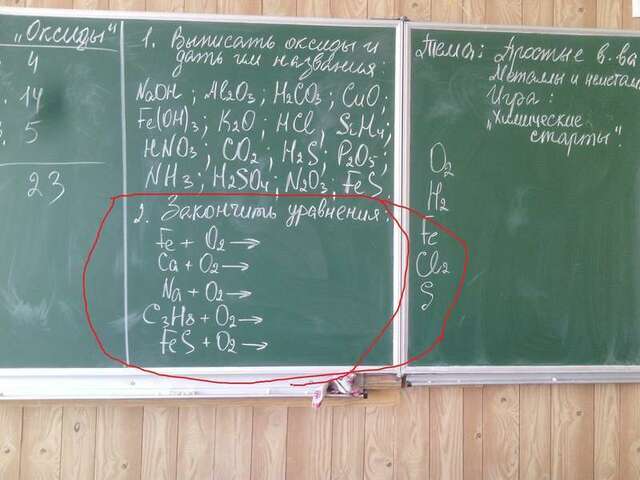 „Оксиды"
4
14
5
23
1. Выписать оксиды и
дать им названия:
NaOH ; Al2O3 ; H2CO3 ; CuO ;
Fe(OH)3 ; K2O ; HCl ; SiH4 ;
HNO3 ; CO2 ; H2S ; P2O5 ;
NH3 ; H2SO4 ; N2O3 ; FeS
2. Закончить уравнения:
Fe + O2 →
Ca + O2 →
Na + O2 →
C3H8 + O2 →
FeS + O2 →
Тема: Простые в.ва
Металлы и неметал
Игра :
„Химические
старты".
O2
H2
Fe
Cl2
S